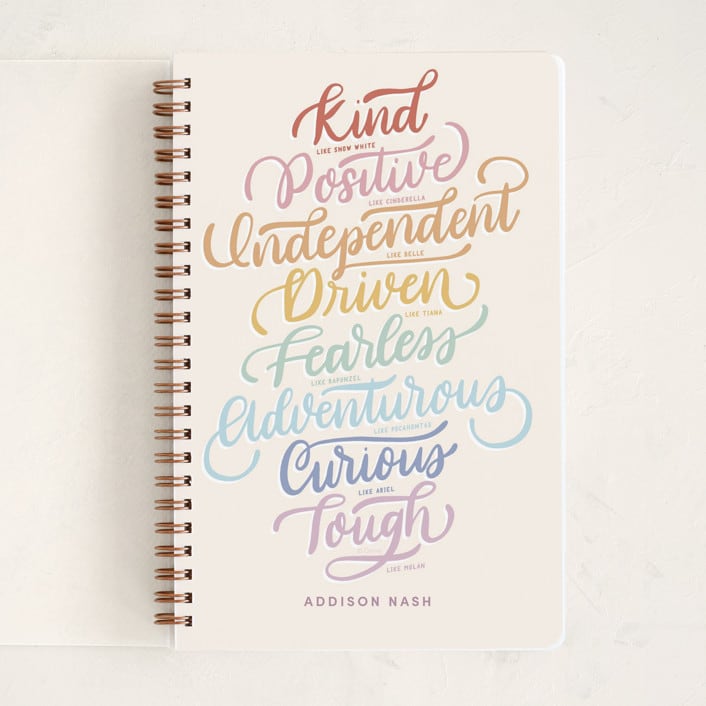 Kind
LIKE SNOW WHITE
Positive
LIKE CINDERELLA
Independent
LIKE BELLE
Driven
LIKE TIANA
Fearless
LIKE RAPUNZEL
Adventurous
LIKE POCAHONTAS
Curious
LIKE ARIEL
Tough
© Disney
LIKE MULAN
ADDISON NASH